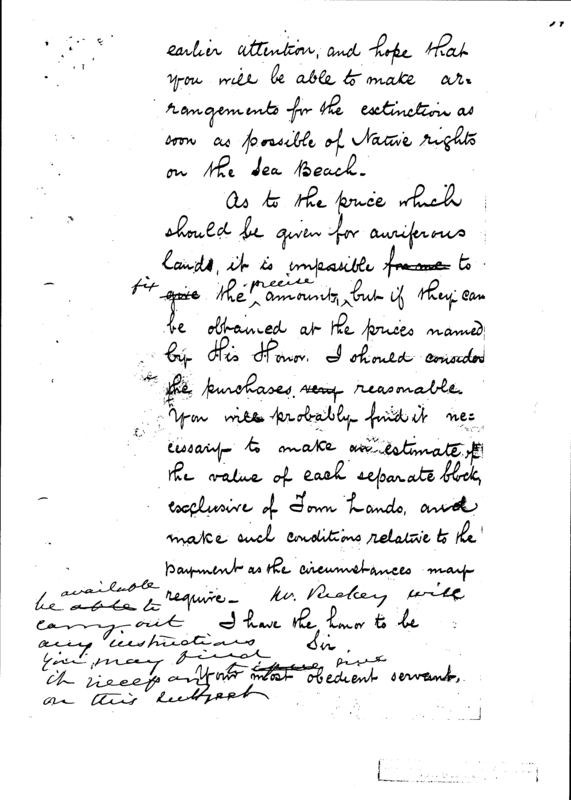 earlier attention, and hope that
you will be able to make ar=
rangements for the extinction as
soon as possible of Native rights
on the Sea Beach.
As to the price which
should be given for auriferous
lands, it is impossible for me to
fix give the precise amounts, but if they can
be obtained at the prices named
by His Honor. I should consider
the purchases very reasonable.
You will probably find it ne=
cessary to make an estimate of
the value of each separate block,
exclusive of Town Lands, and
make such conditions relative to the
payment as the circumstances may
require. Mr. will
be available able to
carry out
any instructions
you may find
it necessary to give
on this subject
I have the honor to be
Sir
Your most obedient servant.